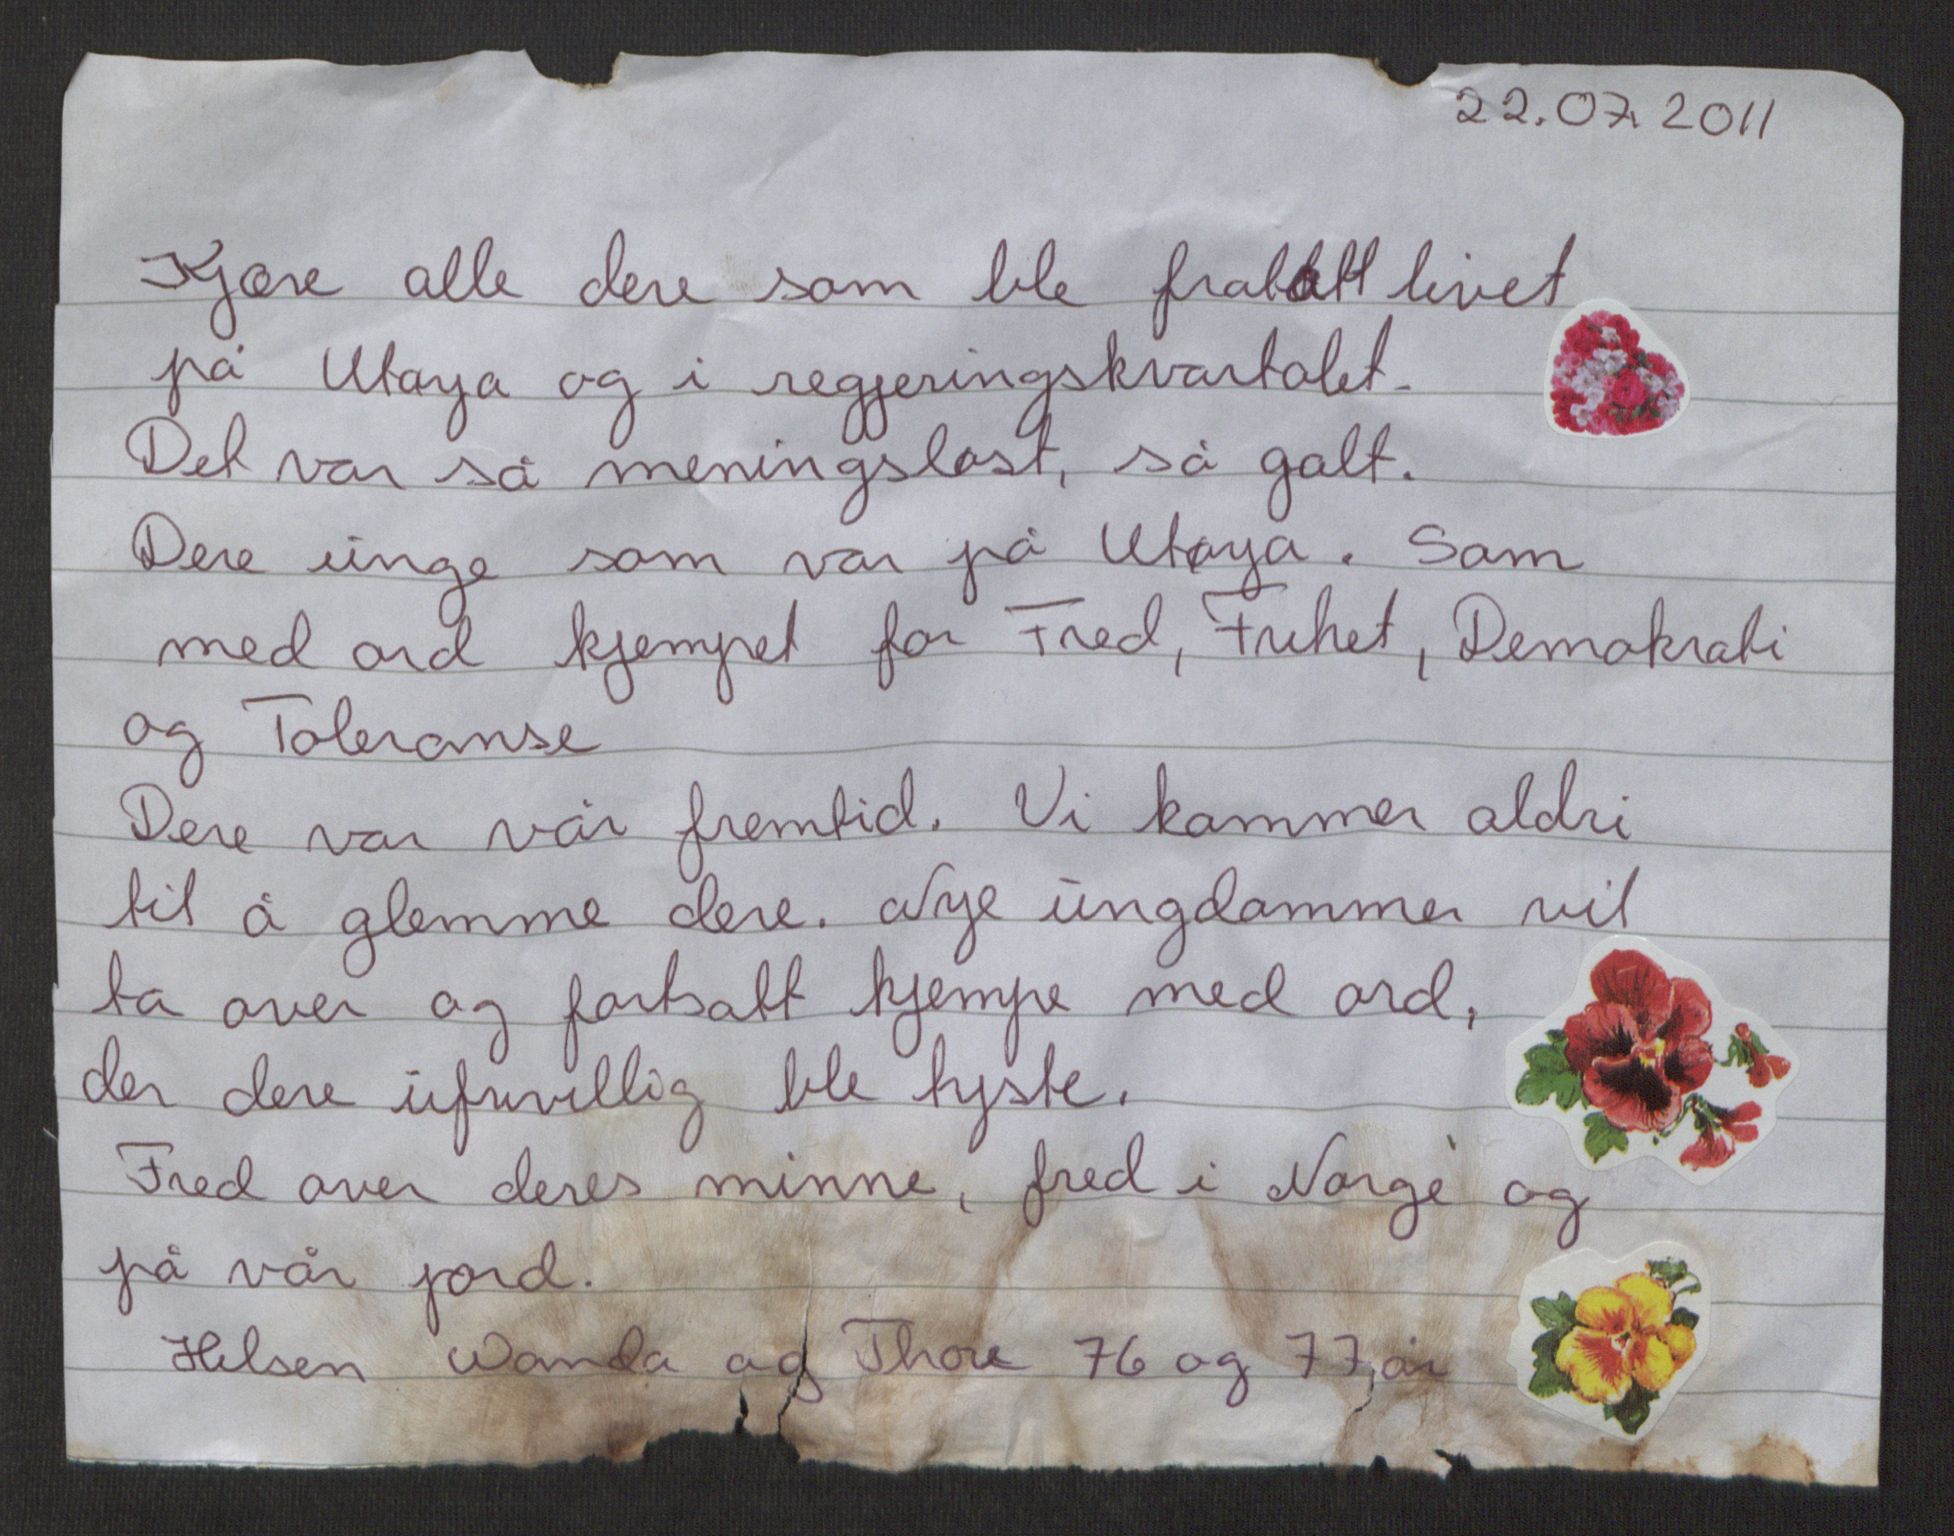 22.07.2011
Kjære alle dere som ble fratatt livet
på Utøya og i regjeringskvartalet.
Det var så meningsløst, så galt.
Dere unge som var på Utøya. Som
med ord kjempet for Fred, Frihet, Demokrati
og Toleranse
Dere var vår fremtid. Vi kommer aldri
til å glemme dere. Nye ungdommer vil
ta over og fortsatt kjempe med ord,
der dere ufrivillig ble tyste.
Fred over deres minne, fred i Norge og
på vår jord.
Hilsen Wanda og Thore 76 og 77 år